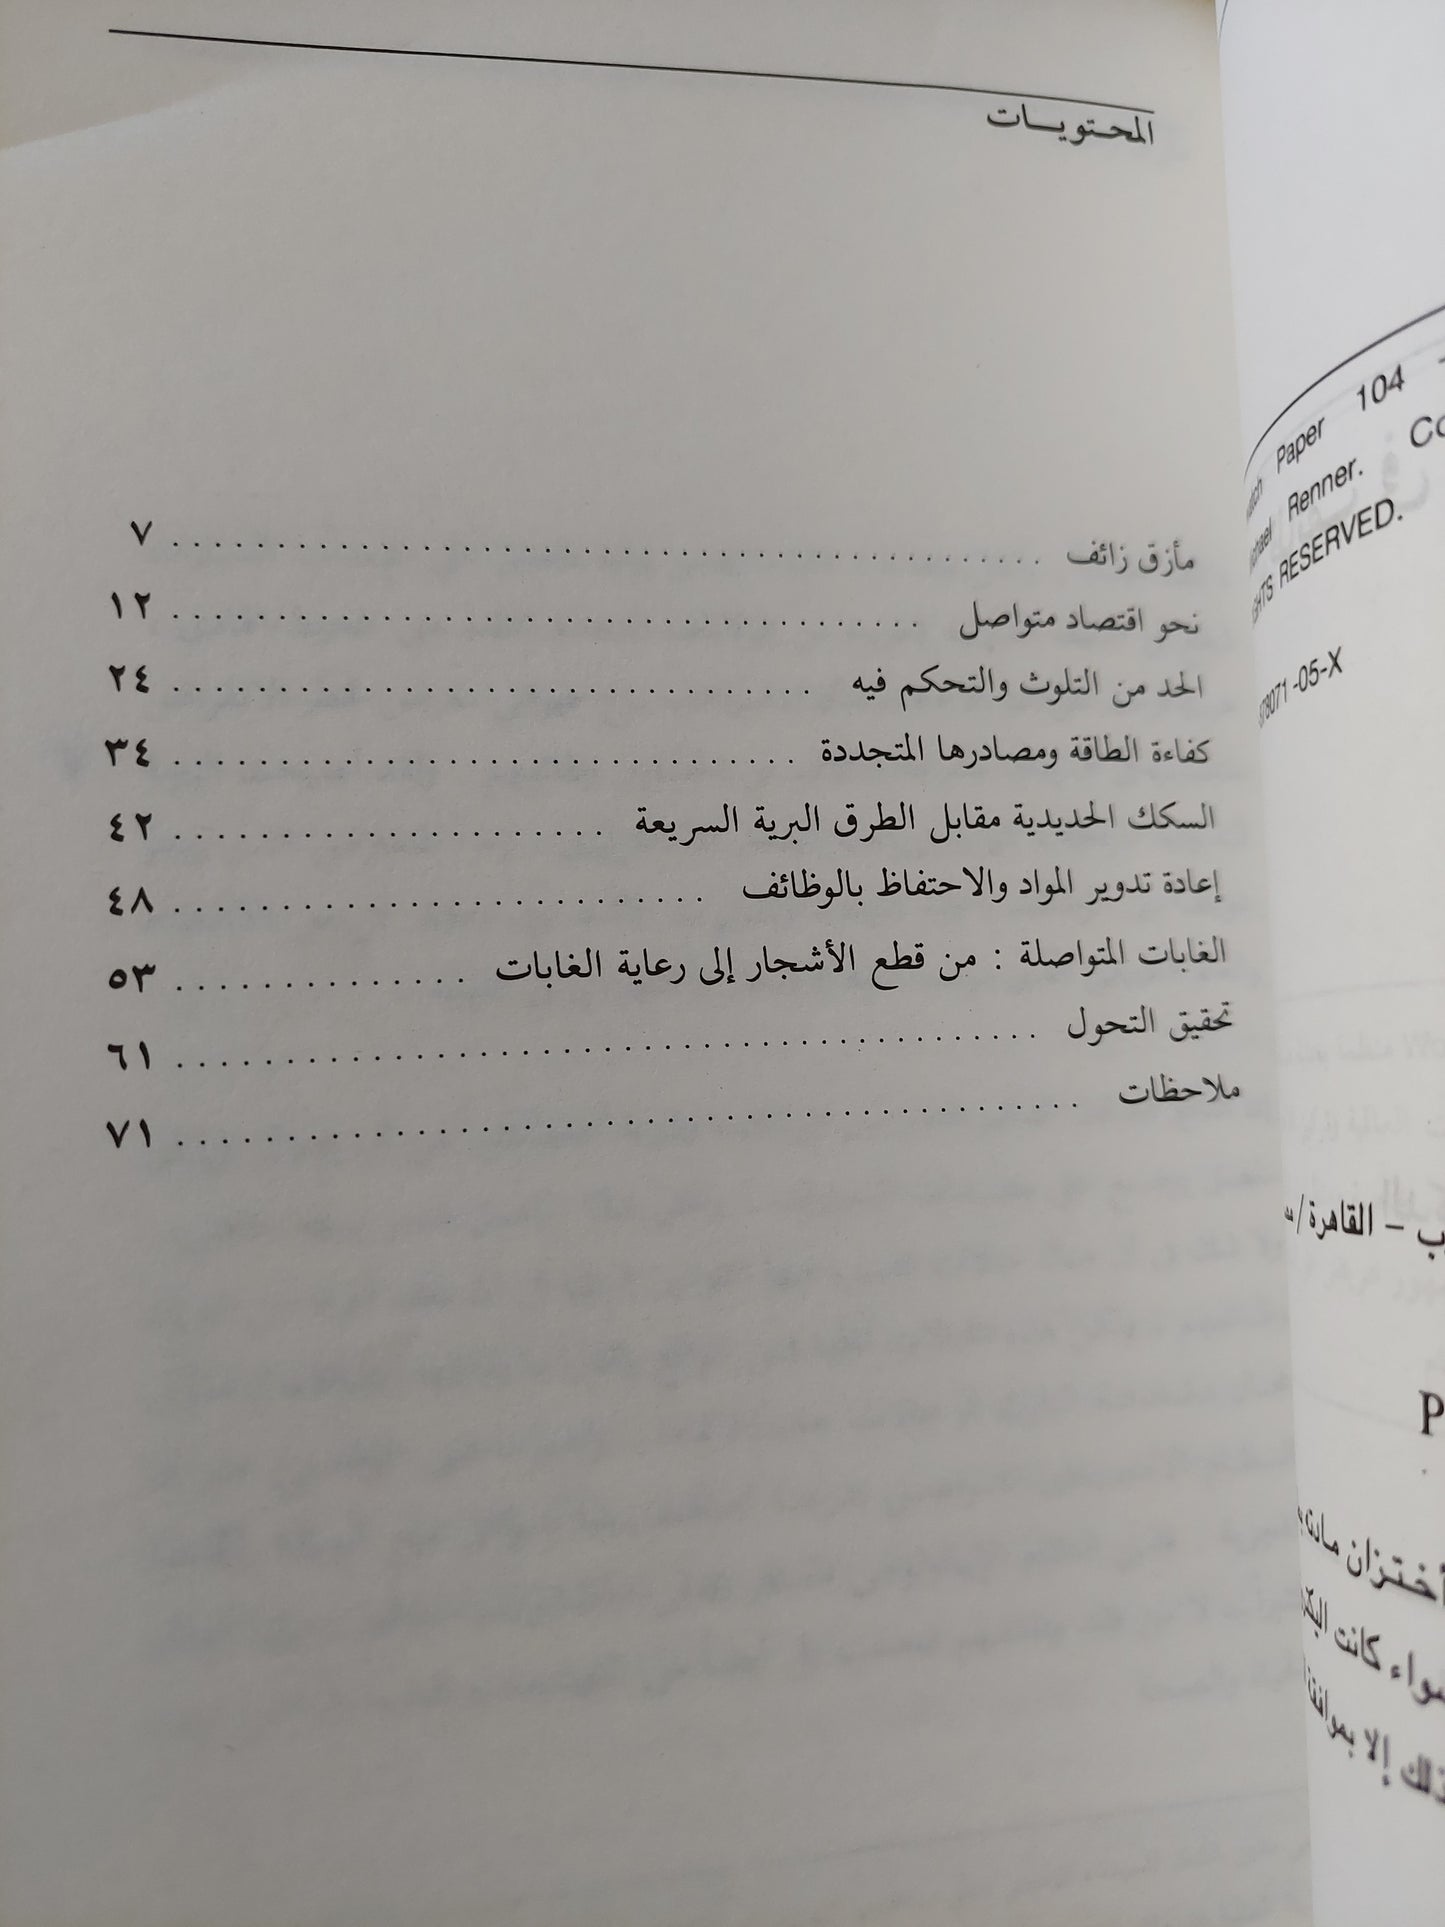 المحتويات
مأزق زائف ٧
نحو اقتصاد متواصل ١٢
الحد من التلوث والتحكم فيه ٢٤
كفاءة الطاقة ومصادرها المتجددة ٣٤
السكك الحديدية مقابل الطرق البرية السريعة ٤٢
إعادة تدوير المواد والاحتفاظ بالوظائف ٤٨
الغابات المتواصلة : من قطع الأشجار إلى رعاية الغابات ٥٣
تحقيق التحول ٦١
ملاحظات ٧١
Paper 104
Renner.
RESERVED.
-05-X
– القاهرة /
كانت
إلا